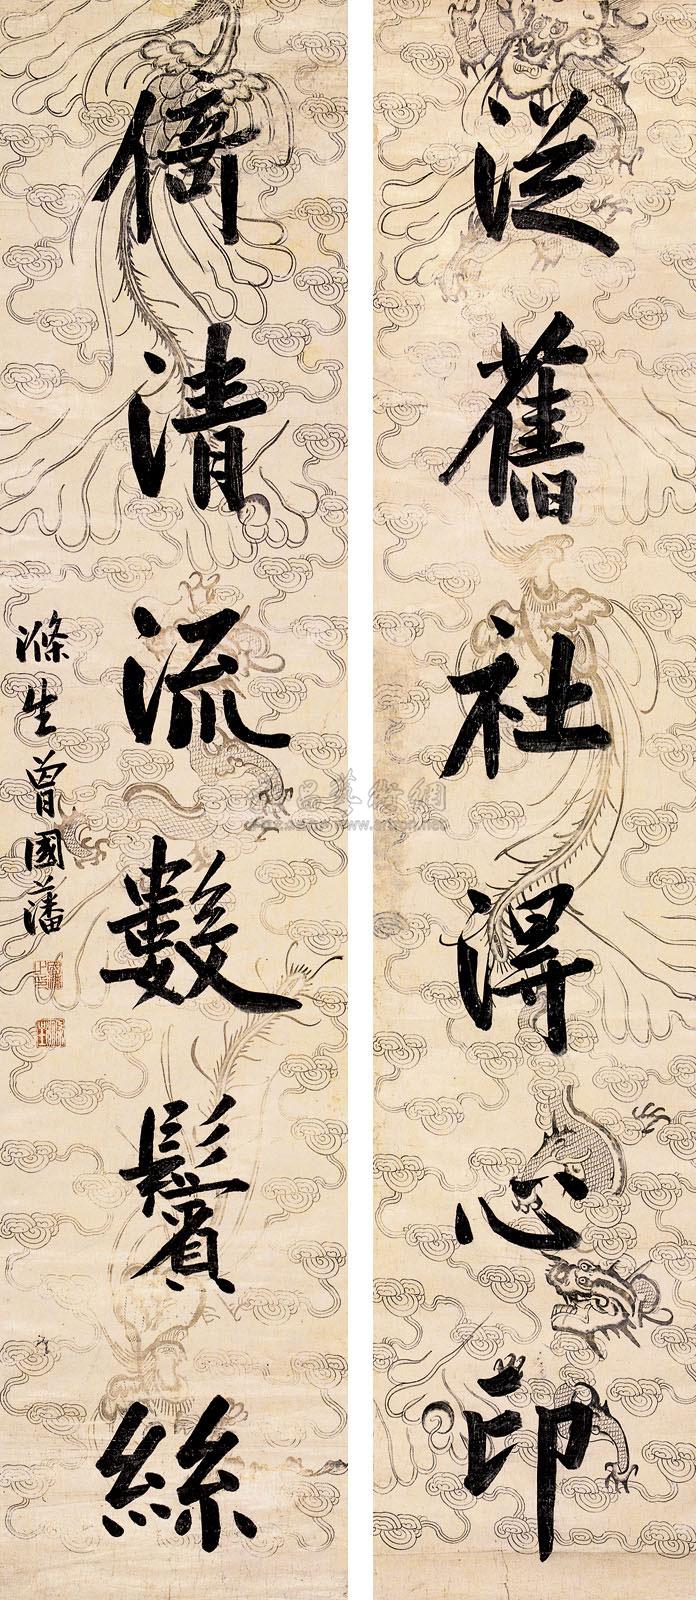 從舊社得心印
倚清流數鬢絲
滌生曾國藩